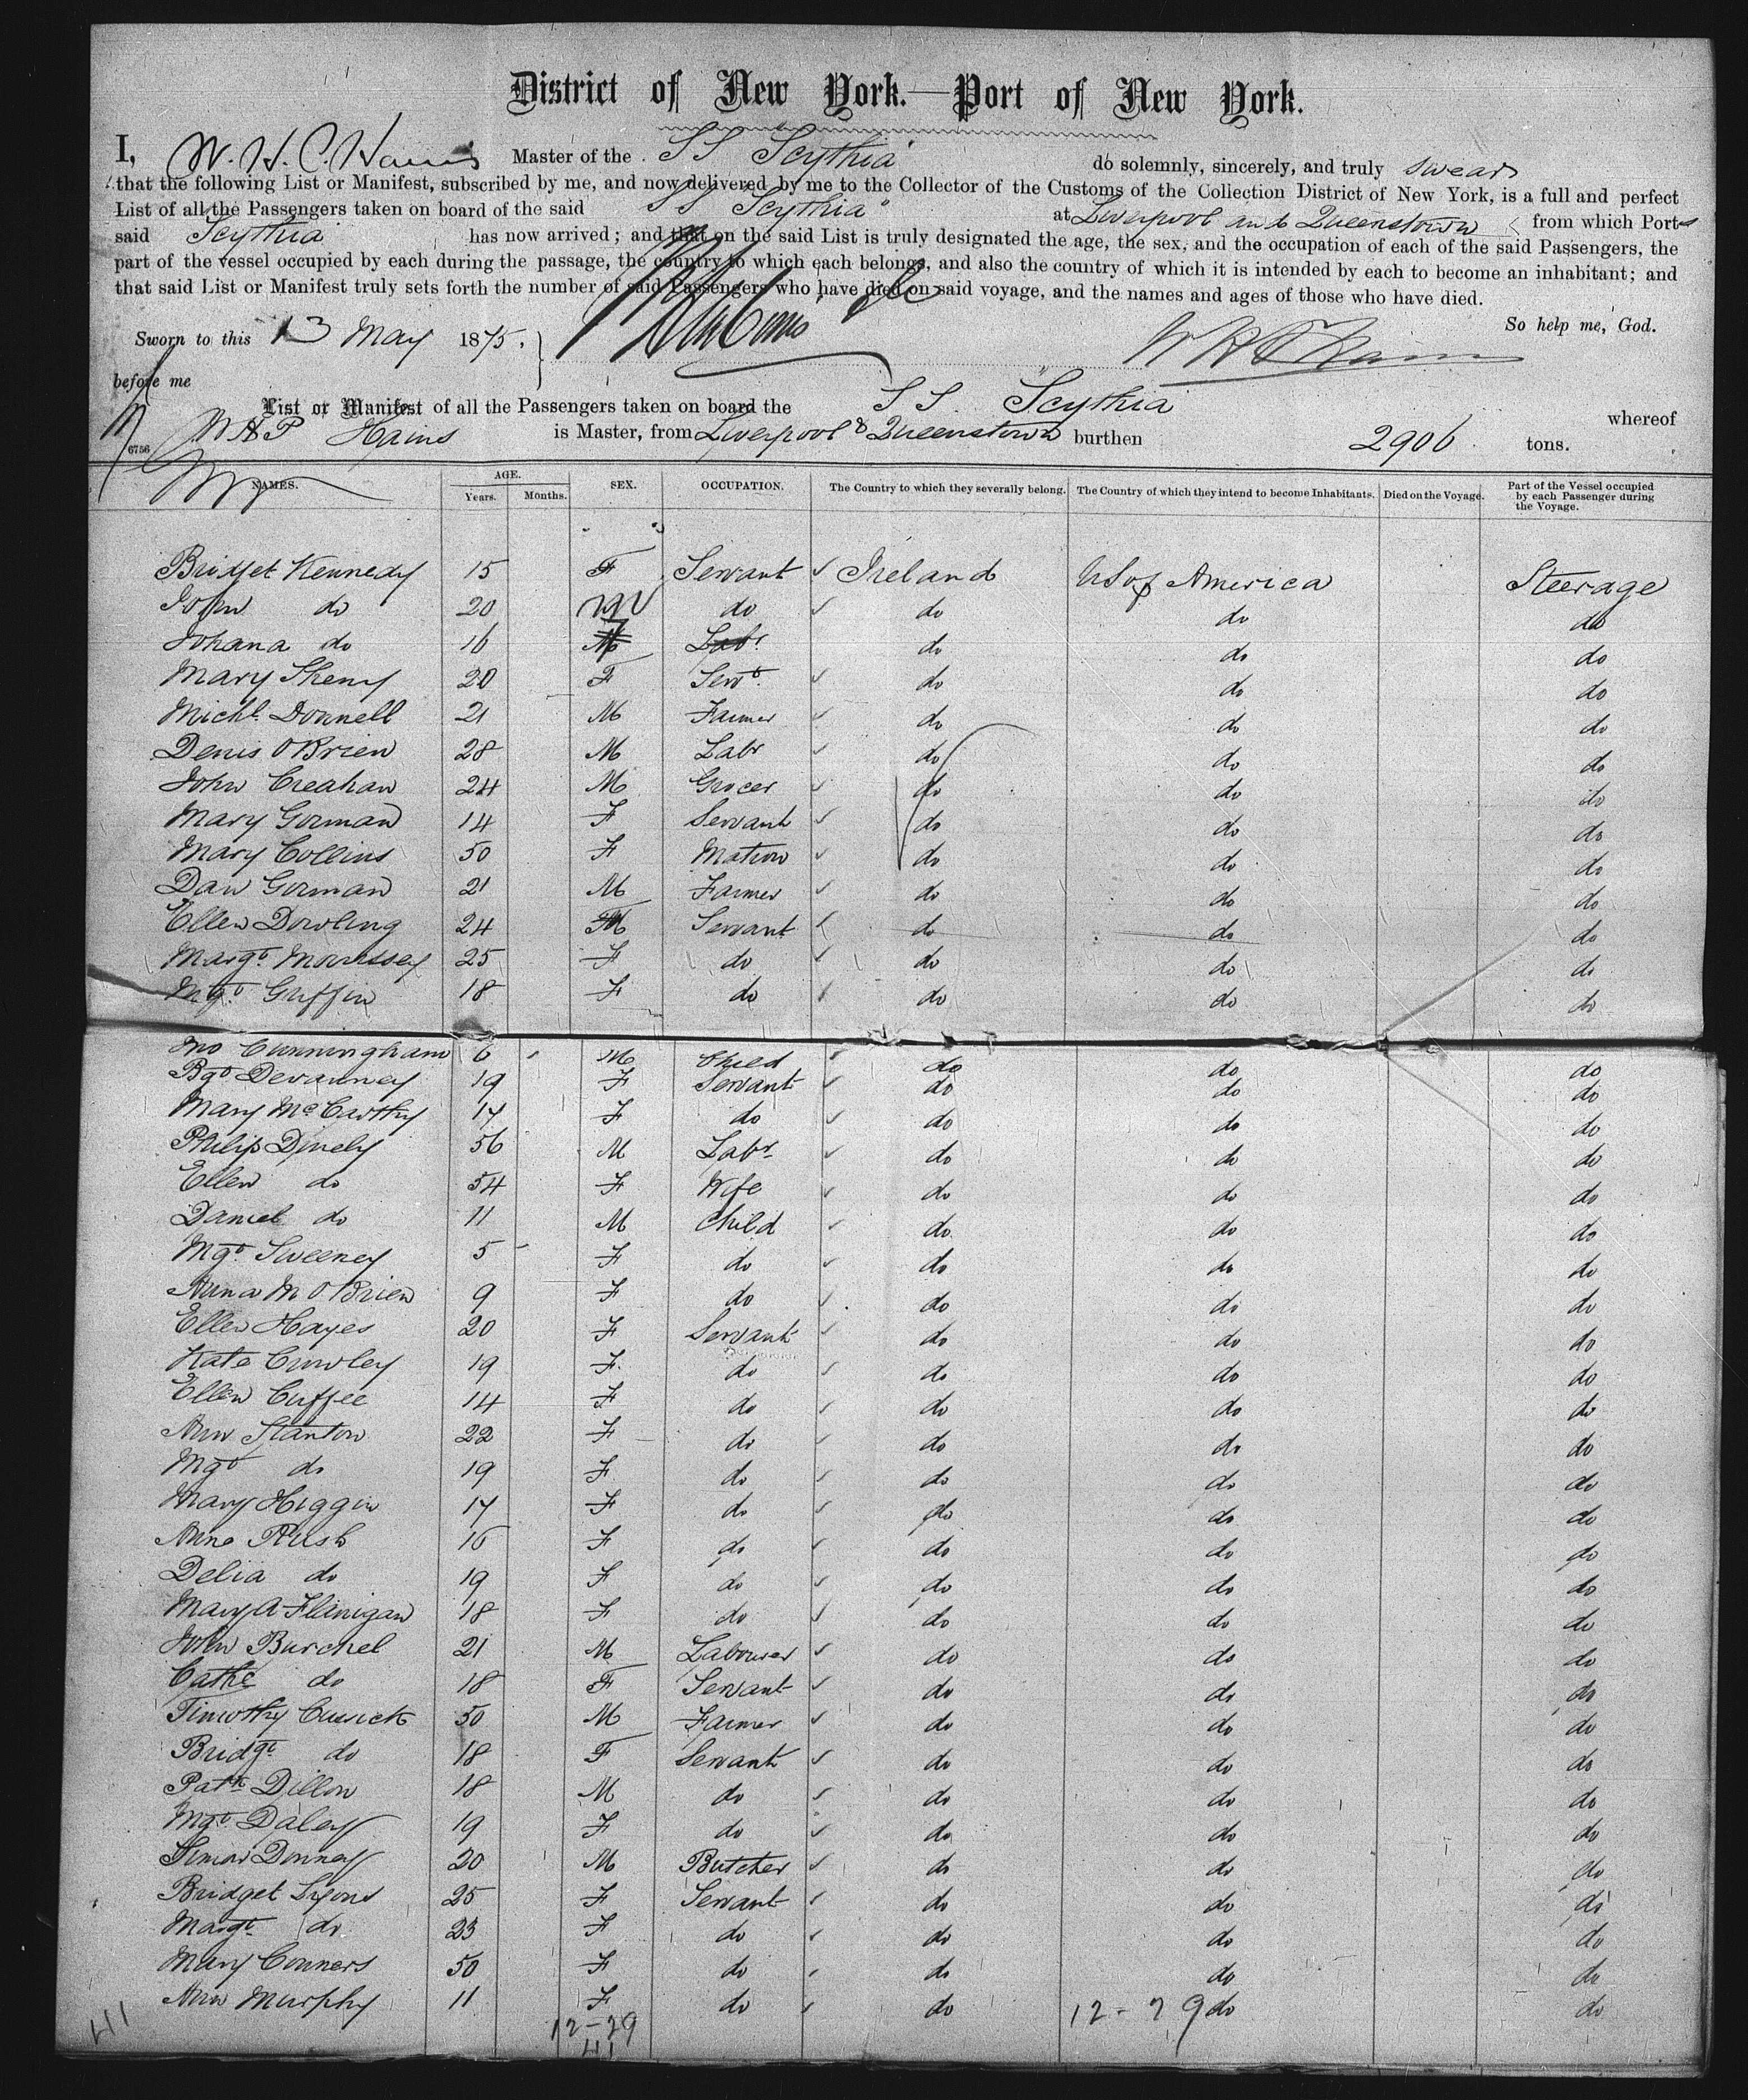 District of New York.—Port of New York.
I, W. H. P. Hains Master of the SS Scythia do solemnly, sincerely, and truly swear
that the following List or Manifest, subscribed by me, and now delivered by me to the Collector of the Customs of the Collection District of New York, is a full and perfect
List of all the Passengers taken on board of the said SS "Scythia" at Liverpool and Queenstown from which Ports
said Scythia has now arrived; and that on the said List is truly designated the age, the sex, and the occupation of each of the said Passengers, the
part of the vessel occupied by each during the passage, the country to which each belongs, and also the country of which it is intended by each to become an inhabitant; and
that said List or Manifest truly sets forth the number of said Passengers who have died on said voyage, and the names and ages of those who have died.
So help me, God.
Sworn to this 13 May 1875.
W H P Hains
before me
List or Manifest of all the Passengers taken on board the SS. "Scythia" whereof
W H P Hains is Master, from Liverpool & Queenstown burthen 2906 tons.
6756
NAMES. AGE. Years. Months. SEX. OCCUPATION. The Country to which they severally belong. The Country of which they intend to become Inhabitants. Died on the Voyage. Part of the Vessel occupied by each Passenger during the Voyage.
Bridget Kennedy 15 F Servant Ireland US of America Steerage
John do 20 M do do do do
Johana do 16 F Labr do do do
Mary Sheny 20 F Servt. do do do
Michl. Donnell 21 M Farmer do do do
Denis OBrien 28 M Labr do do do
John Creahan 24 M Grocer do do do
Mary Gorman 14 F Servant do do do
Mary Collins 50 F Matron do do do
Dan Gorman 21 M Farmer do do do
Ellen Dowling 24 F Servant do do do
Margt. Morrissey 25 F do do do do
Mgt. Griffin 18 F do do do do
Jno Cunningham 6 M Child do do do
Bgt Devanney 19 F Servant do do do
Mary McCarthy 17 F do do do do
Philip Dinely 56 M Labr do do do
Ellen do 54 F Wife do do do
Daniel do 11 M Child do do do
Mgt. Sweeney 5 F do do do do
Anna M OBrien 9 F do do do do
Ellen Hayes 20 F Servant do do do
Kate Crowley 19 F do do do do
Ellen Cuffee 14 F do do do do
Ann Stanton 22 F do do do do
Mgt do 19 F do do do do
Mary Higgin 17 F do do do do
Anne Rush 16 F do do do do
Delia do 19 F do do do do
Mary A Flanigan 18 F do do do do
John Burchel 21 M Labourer do do do
Cathe do 18 F Servant do do do
Timothy Cusick 50 M Farmer do do do
Bridgt. do 18 F Servant do do do
Patk Dillon 18 M do do do do
Mgt Daley 19 F do do do do
Simon Donney 20 M Butcher do do do
Bridget Lyons 25 F Servant do do do
Margt. do 23 F do do do do
Mary Conners 50 F do do do do
Ann Murphy 11 F do do do do
41 12-29 12-29
41